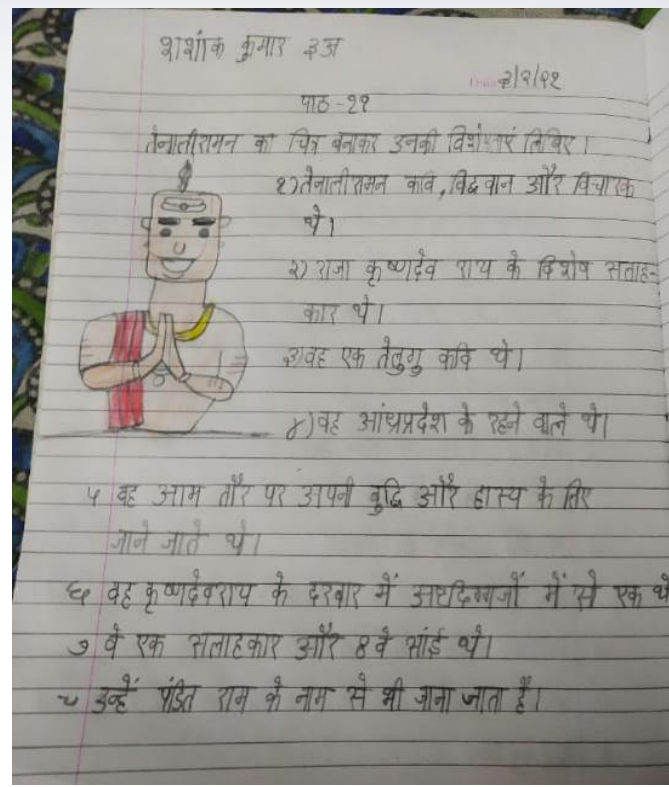 शशांक कुमार ३अ
३/२/२१
पाठ -११
तेनालीरामन का चित्र बनाकर उनकी विशेषताएं लिखिए।
१) तेनालीरामन कवि, विद्वान और विचारक
थे।
२) राजा कृष्णदेव राय के विशेष सलाह-
कार थे।
३) वह एक तेलुगु कवि थे।
४) वह आंध्रप्रदेश के रहने वाले थे।
५ वह आम तौर पर अपनी बुद्धि और हास्य के लिए
जाने जाते थे।
६ वह कृष्णदेवराय के दरबार में अष्टदिग्गजों में से एक थे
७ वे एक सलाहकार और ४ वे भाई थे।
८ उन्हें पंडित राम के नाम से भी जाना जाता है।